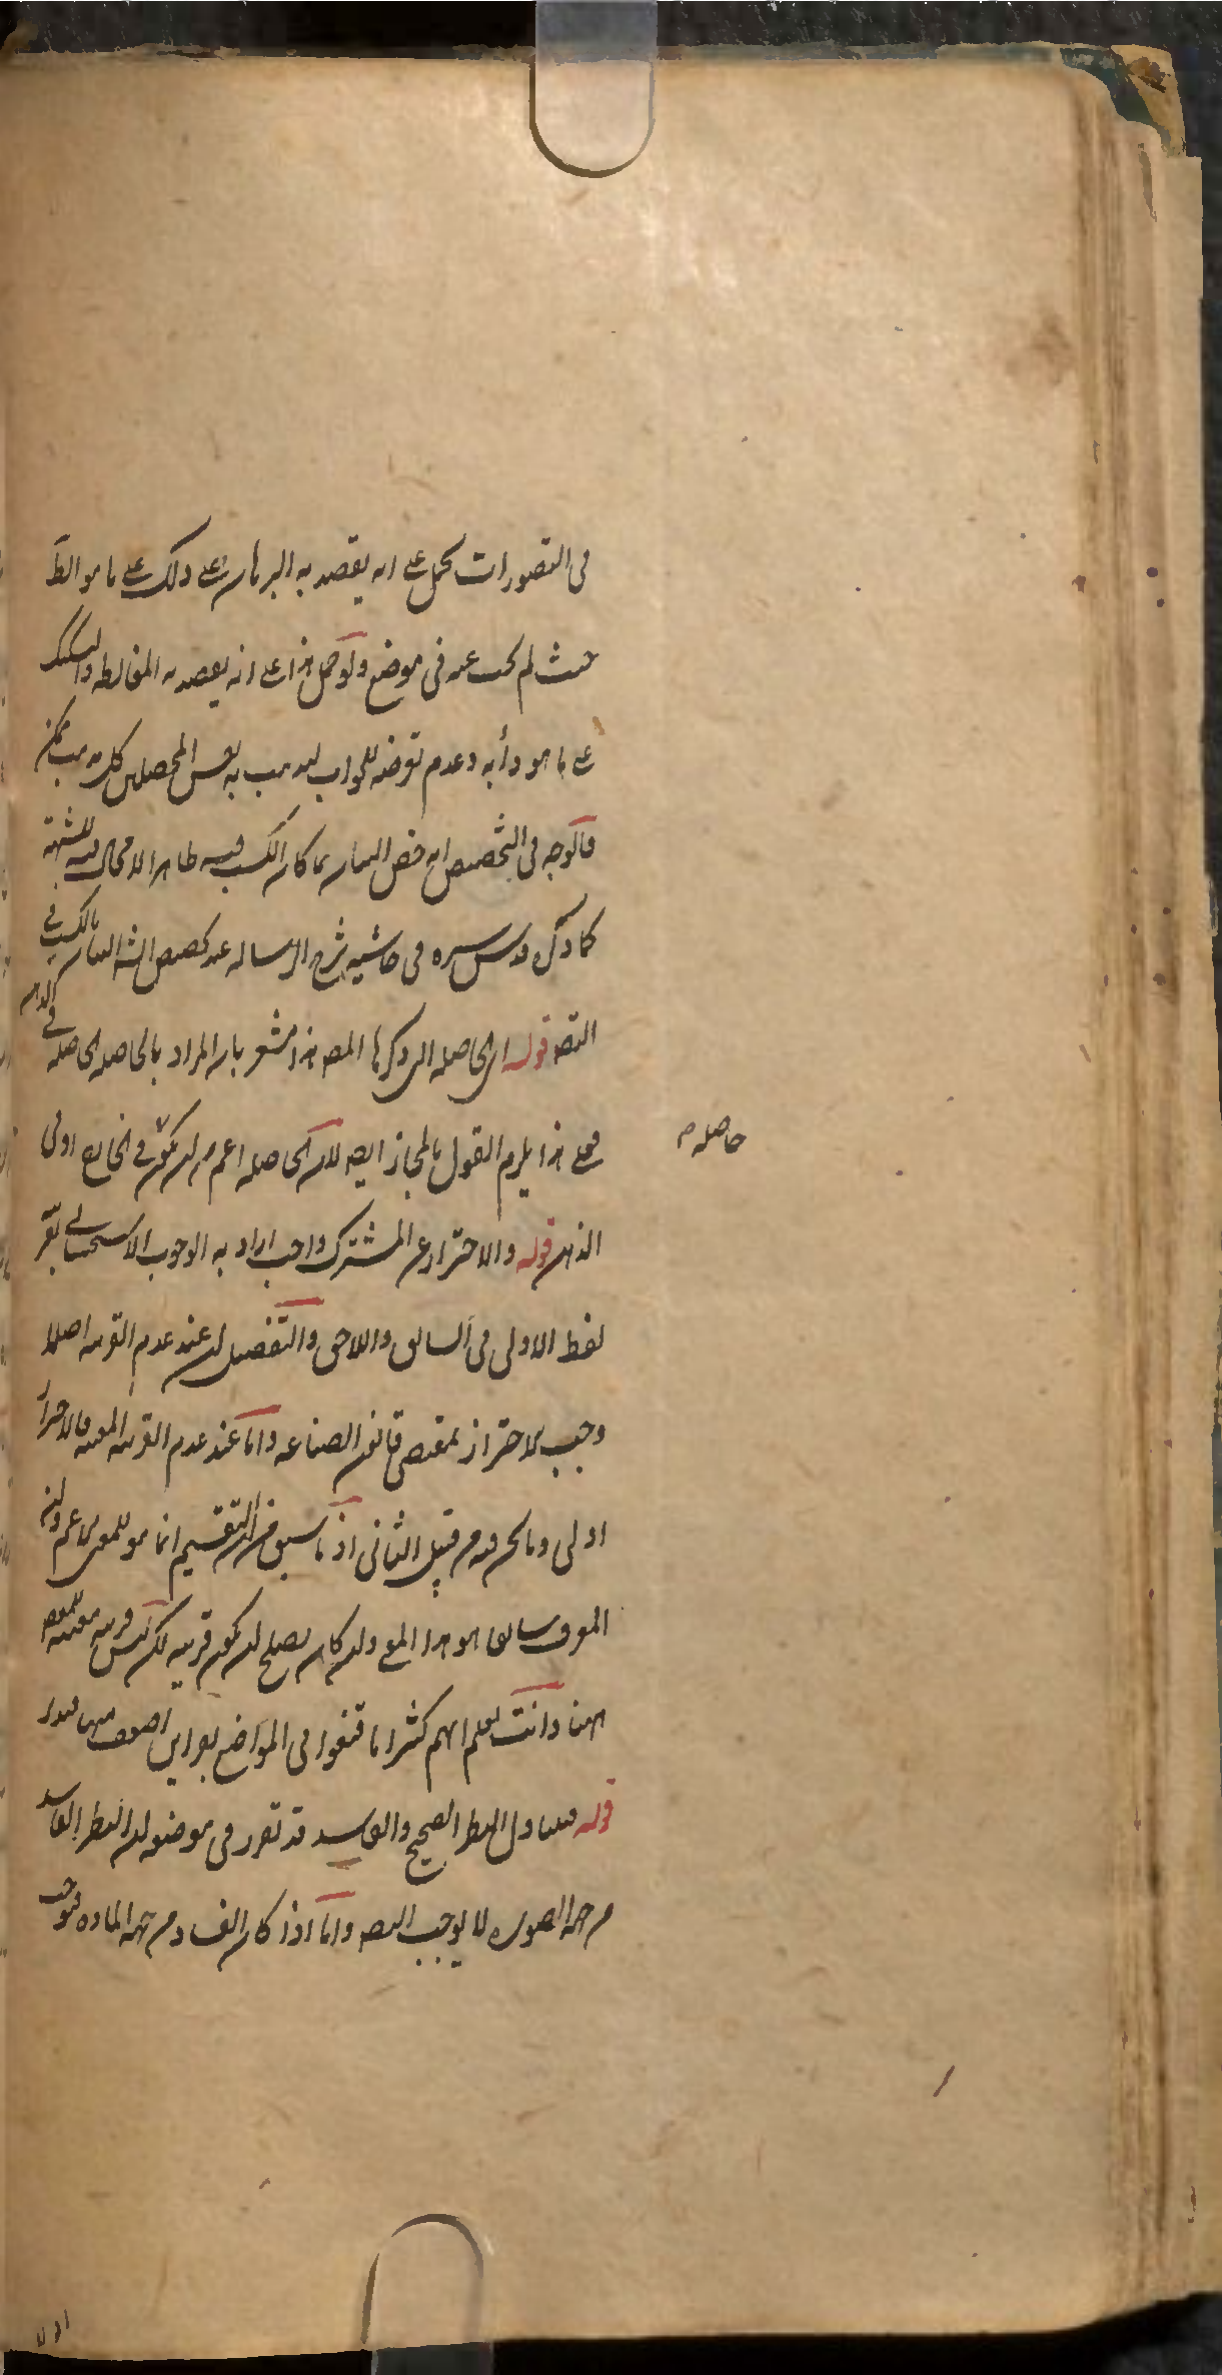 فى التصورات يحمل على انه يقصد به البرهان على ذلك على ما هو الظ
حيث لم يجب عنه فى موضع ولو حمل هذا على انه يقصد به المغالطه والتشكيك
على ما هو دأبه وعدم تعرضه للجواب ليذهب به بعض المحصلين كل مذهب ممكن
فالوجه فى التخصيص انه خص البيان بما كان الكسب فيه ظاهرا لا مجال فيه للشبهة
كما ذكر قدس سره فى حاشيه شرح الرساله عند تخصيص الش البيان بالكسب فى
التص قوله اى الحاصله التى ذكرها المص هذا مشعر بان المراد بالحاصله الحاصله فى الذهن
فعلى هذا يلزم القول بالمجاز ايضا لان الحاصله اعم من ان يكون فى الخارج او فى
حاصله م
الذهن قوله والاحتراز عن المشترك واجب اراد به الوجوب الاستحسانى بقر
لفظ الاولى فى السابق واللاحق والتفصيل ان عند عدم القرينه اصلا
وجب الاحتراز بمقتضى قانون الصناعه واما عند عدم القرينه المعينه فالاحتراز
اولى وما نحن فيه من قبيل الثانى اذ ما سبق من التقسيم انما هو للمعنى الاعم وان
المعرف سابقا هو هذا المعنى وان كان يصلح لان يكون قرينه لكن ليس قرينه معينه للمعنى
ههنا وانت تعلم انهم كثيرا ما قنعوا فى المواضع بقراين اضعف منها
قوله فيتناول النظر الصحيح والفاسد قد تقرر فى موضعه ان النظر الفاسد
من جهه الصوره لا يوجب التص واما اذا كان الفساد من جهه الماده فيوجب